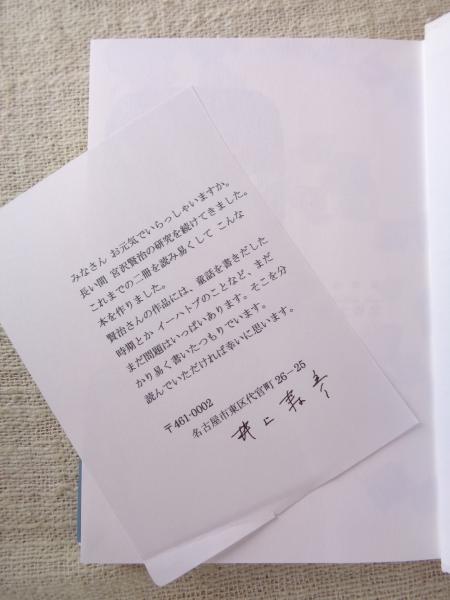 みなさん お元気でいらっしゃいますか。
長い間 宮沢賢治の研究を続けてきました。
これまでの二冊を読み易くして こんな
本を作りました。
賢治さんの作品には、童話を書きだした
時期とか イーハトブのことなど、まだ
まだ問題はいっぱいあります。そこを分
かり易く書いたつもりでいます。
読んでいただければ幸いに思います。
〒461-0002
名古屋市東区代官町 26-25
井上寿彦